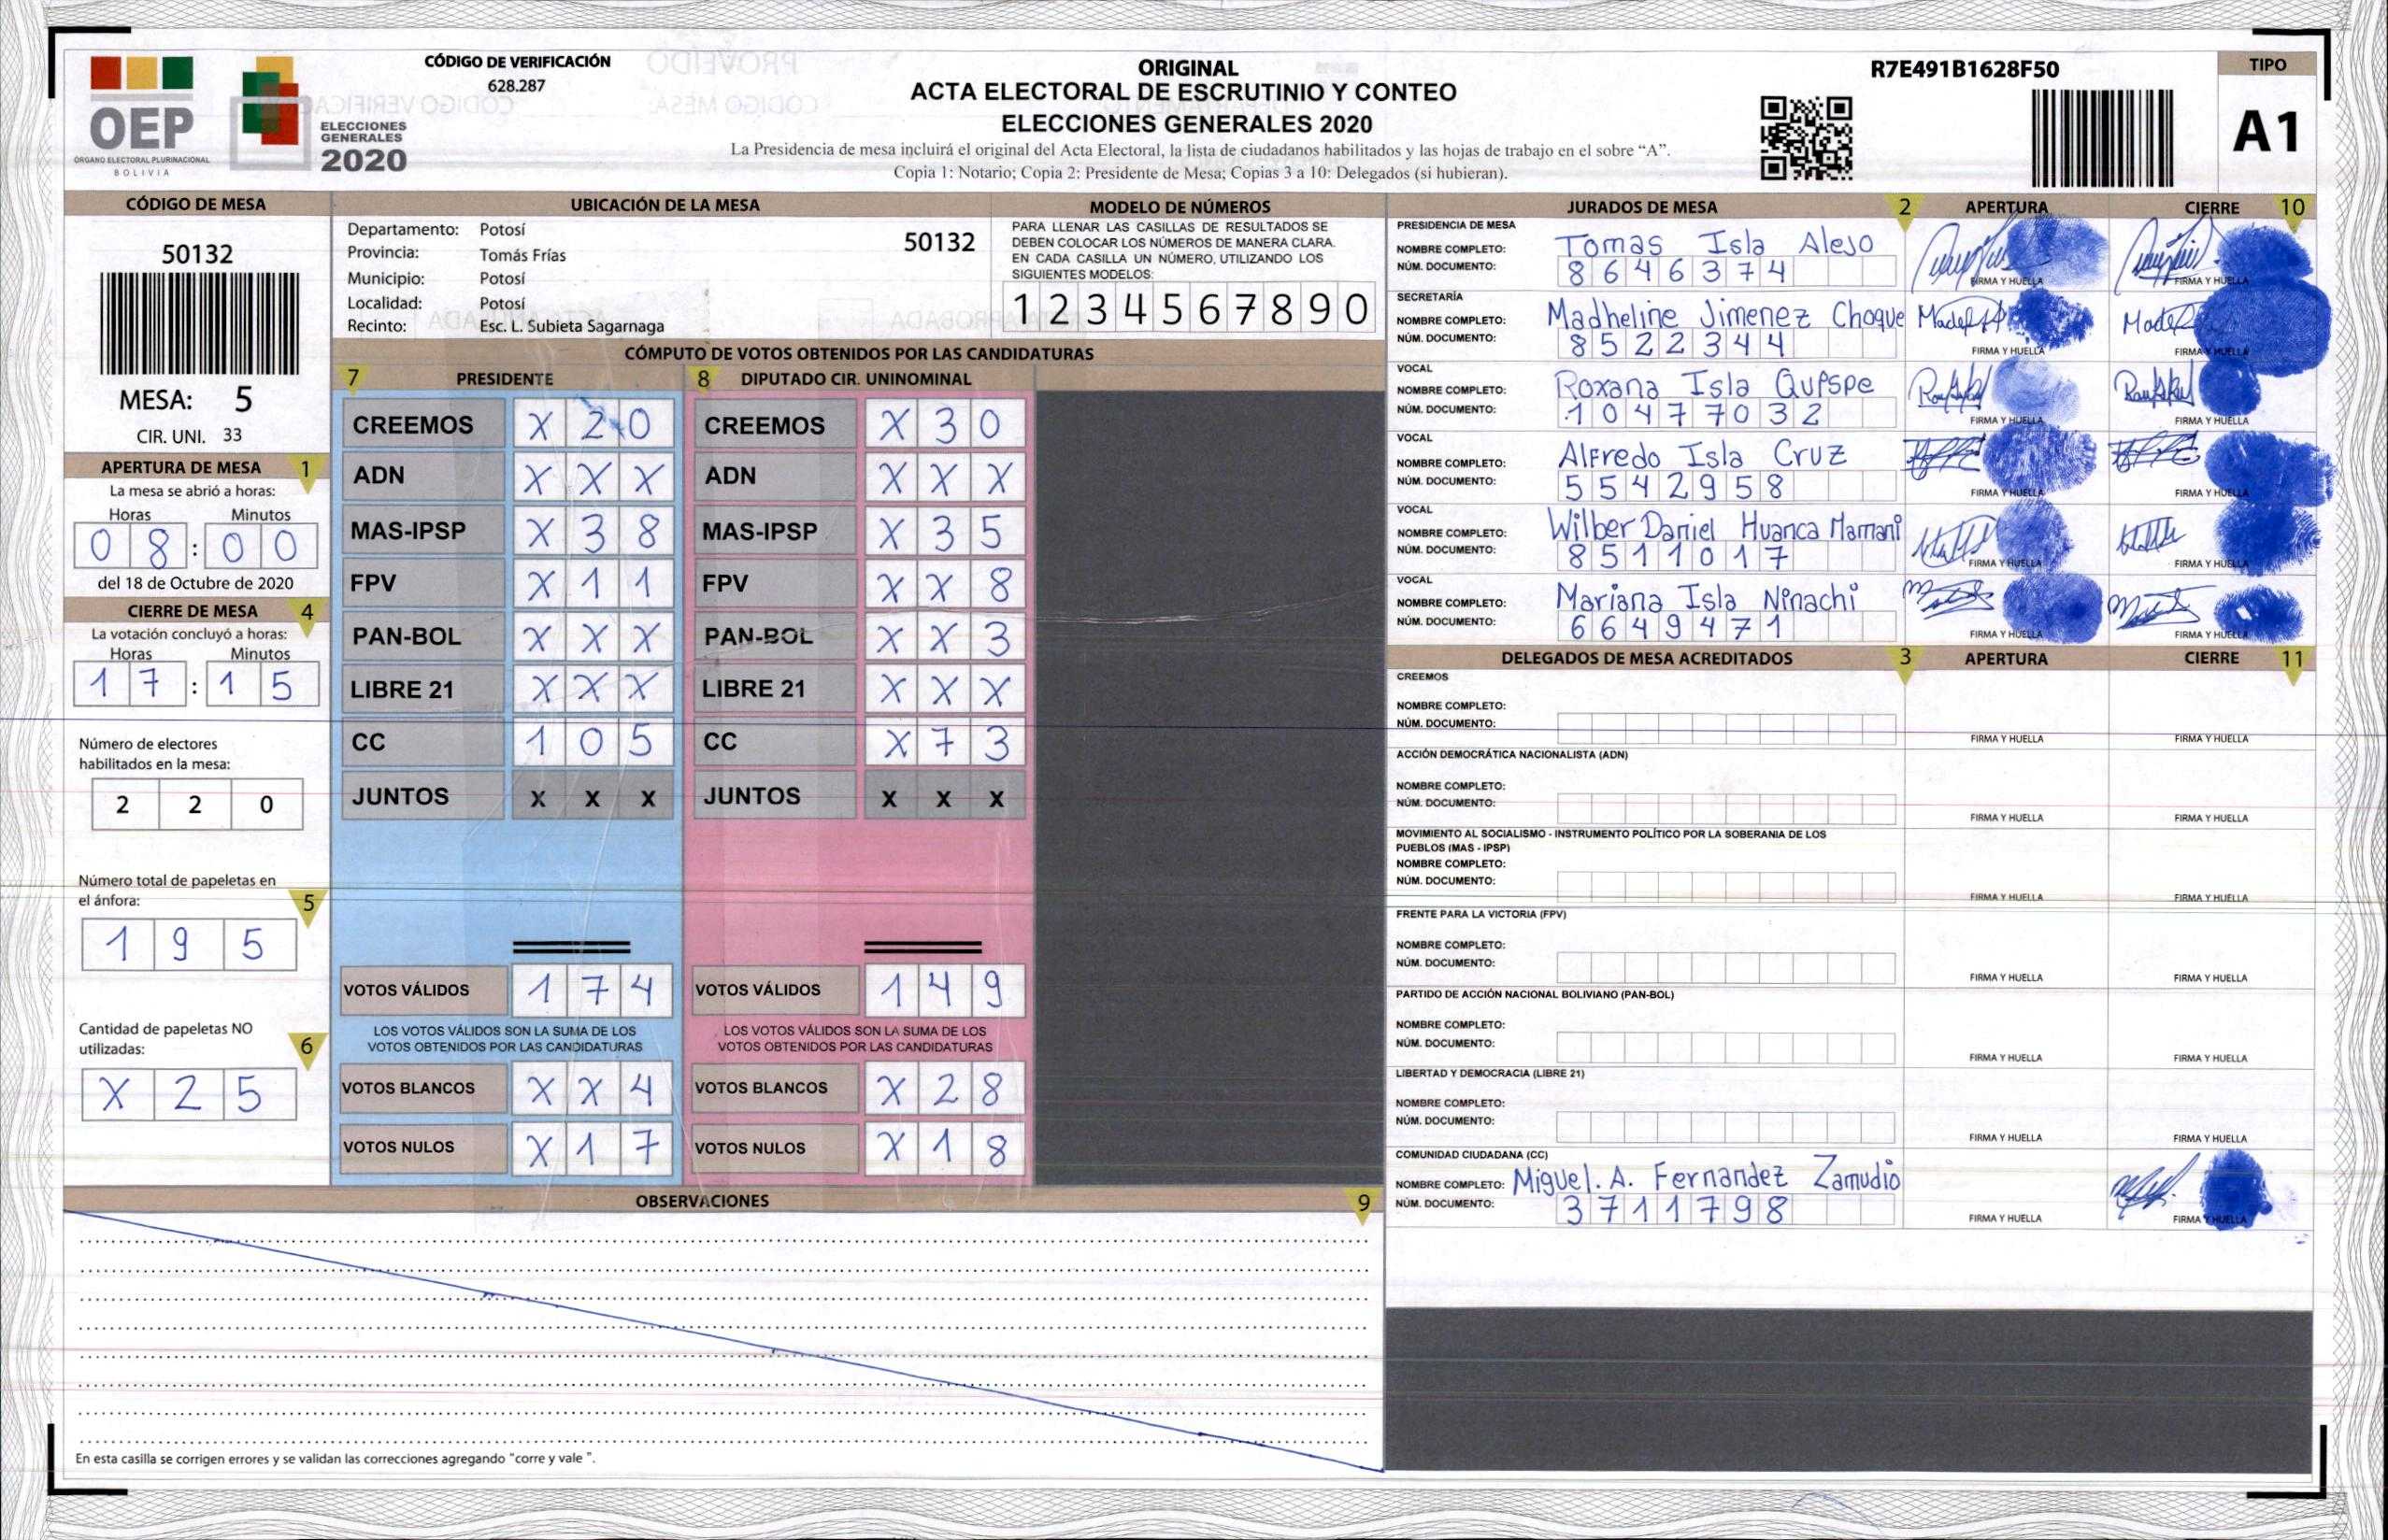 OEP
ÓRGANO ELECTORAL PLURINACIONAL
BOLIVIA
ELECCIONES
GENERALES
2020
CÓDIGO DE VERIFICACIÓN
628.287
ORIGINAL
ACTA ELECTORAL DE ESCRUTINIO Y CONTEO
ELECCIONES GENERALES 2020
La Presidencia de mesa incluirá el original del Acta Electoral, la lista de ciudadanos habilitados y las hojas de trabajo en el sobre “A”.
Copia 1: Notario; Copia 2: Presidente de Mesa; Copias 3 a 10: Delegados (si hubieran).
R7E491B1628F50
TIPO
A1
CÓDIGO DE MESA
50132
MESA: 5
CIR. UNI. 33
APERTURA DE MESA 1
La mesa se abrió a horas:
Horas Minutos
0 8 : 0 0
del 18 de Octubre de 2020
CIERRE DE MESA 4
La votación concluyó a horas:
Horas Minutos
1 7 : 1 5
Número de electores
habilitados en la mesa:
2 2 0
Número total de papeletas en
el ánfora: 5
1 9 5
Cantidad de papeletas NO
utilizadas: 6
X 2 5
UBICACIÓN DE LA MESA
Departamento: Potosí
Provincia: Tomás Frías
Municipio: Potosí
Localidad: Potosí
Recinto: Esc. L. Subieta Sagarnaga
50132
MODELO DE NÚMEROS
PARA LLENAR LAS CASILLAS DE RESULTADOS SE
DEBEN COLOCAR LOS NÚMEROS DE MANERA CLARA.
EN CADA CASILLA UN NÚMERO, UTILIZANDO LOS
SIGUIENTES MODELOS:
1 2 3 4 5 6 7 8 9 0
CÓMPUTO DE VOTOS OBTENIDOS POR LAS CANDIDATURAS
7 PRESIDENTE 8 DIPUTADO CIR. UNINOMINAL
CREEMOS X 2 0 CREEMOS X 3 0
ADN X X X ADN X X X
MAS-IPSP X 3 8 MAS-IPSP X 3 5
FPV X 1 1 FPV X X 8
PAN-BOL X X X PAN-BOL X X 3
LIBRE 21 X X X LIBRE 21 X X X
CC 1 0 5 CC X 7 3
JUNTOS X X X JUNTOS X X X
VOTOS VÁLIDOS 1 7 4 VOTOS VÁLIDOS 1 4 9
LOS VOTOS VÁLIDOS SON LA SUMA DE LOS LOS VOTOS VÁLIDOS SON LA SUMA DE LOS
VOTOS OBTENIDOS POR LAS CANDIDATURAS VOTOS OBTENIDOS POR LAS CANDIDATURAS
VOTOS BLANCOS X X 4 VOTOS BLANCOS X 2 8
VOTOS NULOS X 1 7 VOTOS NULOS X 1 8
OBSERVACIONES 9
En esta casilla se corrigen errores y se validan las correcciones agregando "corre y vale ".
JURADOS DE MESA 2 APERTURA CIERRE 10
PRESIDENCIA DE MESA
NOMBRE COMPLETO: Tomas Isla Alejo
NÚM. DOCUMENTO: 8 6 4 6 3 7 4
FIRMA Y HUELLA FIRMA Y HUELLA
SECRETARÍA
NOMBRE COMPLETO: Madheline Jimenez Choque
NÚM. DOCUMENTO: 8 5 2 2 3 4 4
FIRMA Y HUELLA FIRMA Y HUELLA
VOCAL
NOMBRE COMPLETO: Roxana Isla Quispe
NÚM. DOCUMENTO: 1 0 4 7 7 0 3 2
FIRMA Y HUELLA FIRMA Y HUELLA
VOCAL
NOMBRE COMPLETO: Alfredo Isla Cruz
NÚM. DOCUMENTO: 5 5 4 2 9 5 8
FIRMA Y HUELLA FIRMA Y HUELLA
VOCAL
NOMBRE COMPLETO: Wilber Daniel Huanca Mamani
NÚM. DOCUMENTO: 8 5 1 1 0 1 7
FIRMA Y HUELLA FIRMA Y HUELLA
VOCAL
NOMBRE COMPLETO: Mariana Isla Ninachi
NÚM. DOCUMENTO: 6 6 4 9 4 7 1
FIRMA Y HUELLA FIRMA Y HUELLA
DELEGADOS DE MESA ACREDITADOS 3 APERTURA CIERRE 11
CREEMOS
NOMBRE COMPLETO:
NÚM. DOCUMENTO:
FIRMA Y HUELLA FIRMA Y HUELLA
ACCIÓN DEMOCRÁTICA NACIONALISTA (ADN)
NOMBRE COMPLETO:
NÚM. DOCUMENTO:
FIRMA Y HUELLA FIRMA Y HUELLA
MOVIMIENTO AL SOCIALISMO - INSTRUMENTO POLÍTICO POR LA SOBERANIA DE LOS
PUEBLOS (MAS - IPSP)
NOMBRE COMPLETO:
NÚM. DOCUMENTO:
FIRMA Y HUELLA FIRMA Y HUELLA
FRENTE PARA LA VICTORIA (FPV)
NOMBRE COMPLETO:
NÚM. DOCUMENTO:
FIRMA Y HUELLA FIRMA Y HUELLA
PARTIDO DE ACCIÓN NACIONAL BOLIVIANO (PAN-BOL)
NOMBRE COMPLETO:
NÚM. DOCUMENTO:
FIRMA Y HUELLA FIRMA Y HUELLA
LIBERTAD Y DEMOCRACIA (LIBRE 21)
NOMBRE COMPLETO:
NÚM. DOCUMENTO:
FIRMA Y HUELLA FIRMA Y HUELLA
COMUNIDAD CIUDADANA (CC)
NOMBRE COMPLETO: Miguel. A. Fernandez Zamudio
NÚM. DOCUMENTO: 3 7 1 1 7 9 8
FIRMA Y HUELLA FIRMA Y HUELLA